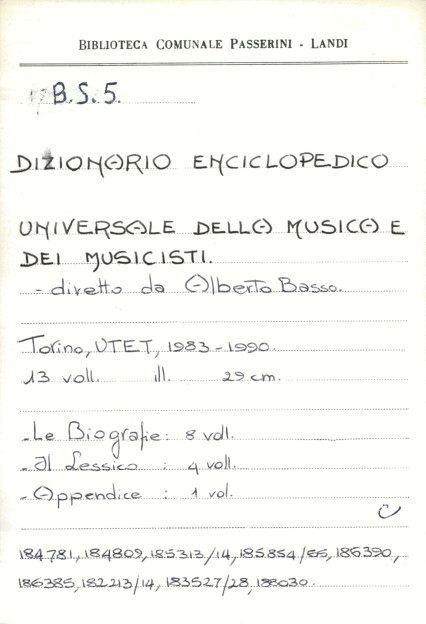 BIBLIOTECA COMUNALE PASSERINI - LANDI
B.S.5.
DIZIONARIO ENCICLOPEDICO
UNIVERSALE DELLA MUSICA E
DEI MUSICISTI.
- diretto da Alberto Basso.
Torino, UTET, 1983-1990.
13 voll. ill. 29 cm.
- Le Biografie: 8 voll.
- Il Lessico : 4 voll.
- Appendice : 1 vol.
184781, 184809, 185313/14, 185854/55, 186390,
186385, 182213/14, 183527/28, 188030.